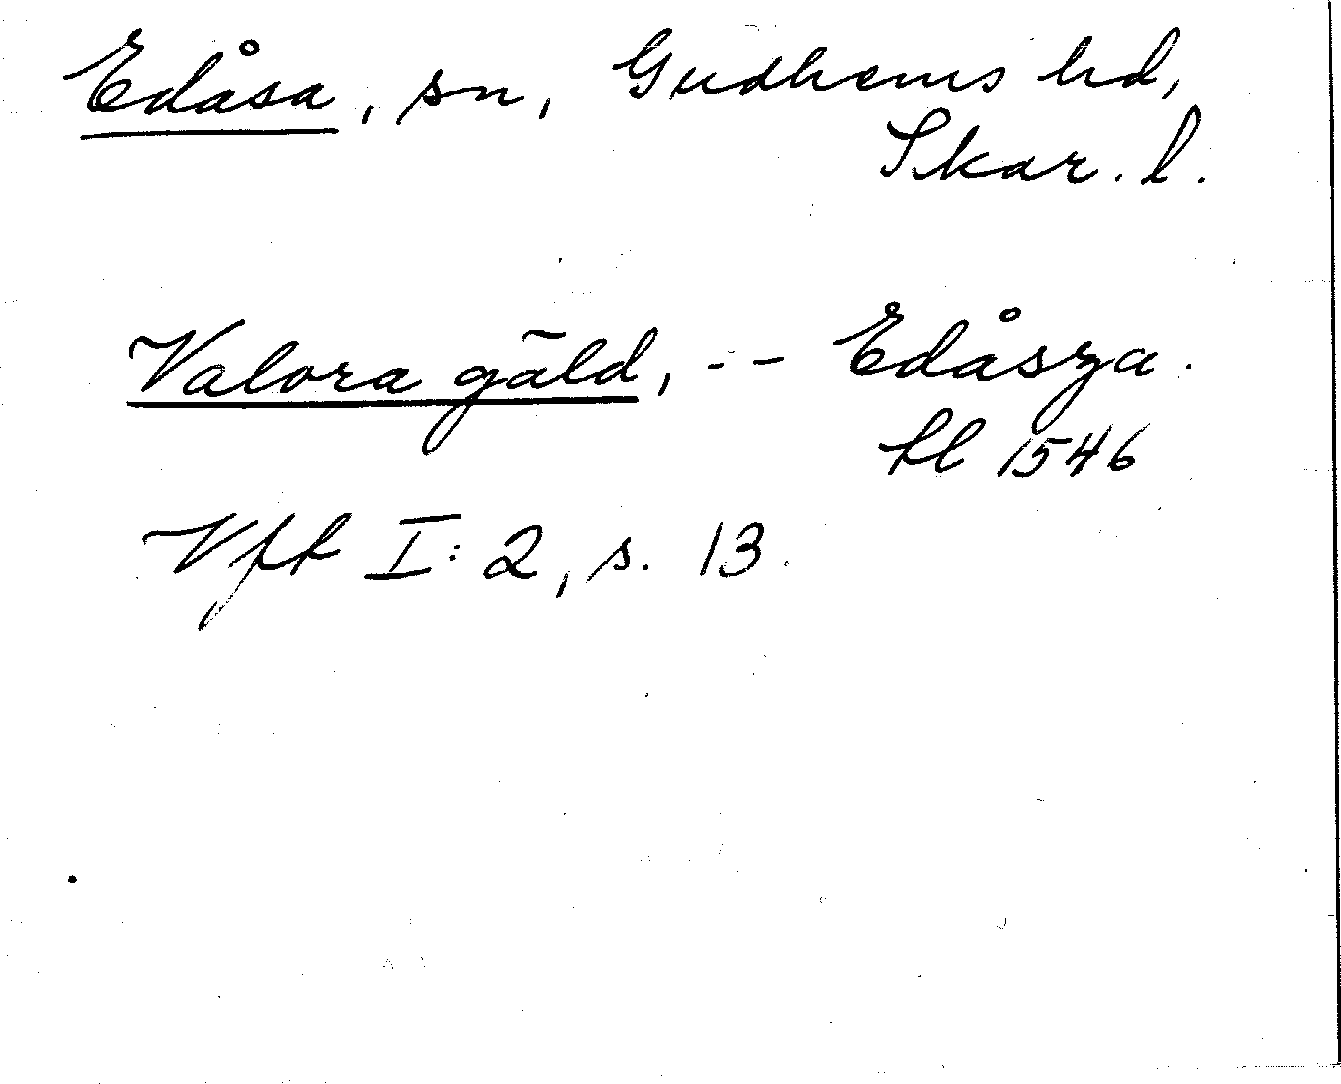 Edåsa, sn, Gudhems hd,
Skar. l.
Valora gäld, -- Edåsza.
hl 1546
Vft I:2, s. 13.